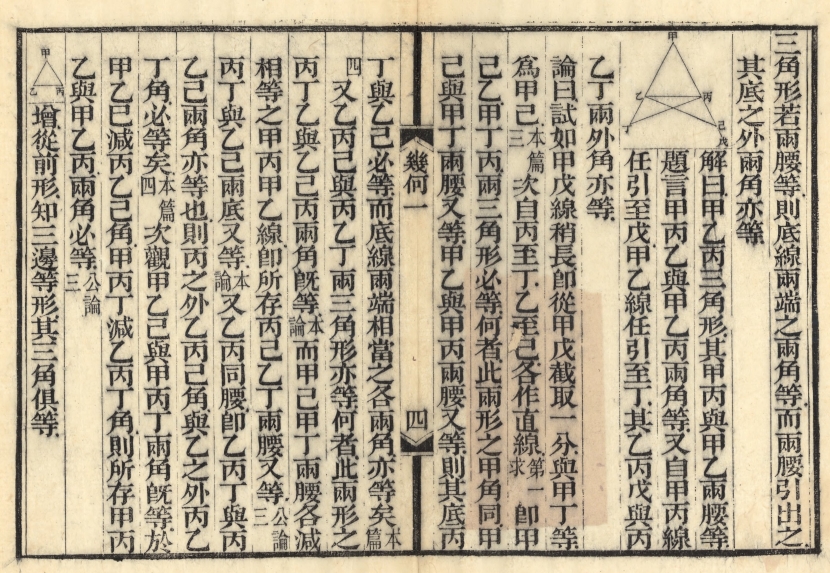 三角形若兩腰等則底線兩端之兩角等而兩腰引出之
其底之外兩角亦等
甲
乙
丙
丁
己
戊
解曰甲乙丙三角形其甲丙與甲乙兩腰等
題言甲丙乙與甲乙丙兩角等又自甲丙線
任引至戊甲乙線任引至丁其乙丙戊與丙
乙丁兩外角亦等
論曰試如甲戊線稍長卽從甲戊截取一分與甲丁等
爲甲己本篇三次自丙至丁乙至己各作直線第一求卽甲
己乙甲丁丙兩三角形必等何者此兩形之甲角同甲
己與甲丁兩腰又等甲乙與甲丙兩腰又等則其底丙
幾何一
四
丁與乙己必等而底線兩端相當之各兩角亦等矣本篇
四又乙丙己與丙乙丁兩三角形亦等何者此兩形之
丙丁乙與乙己丙兩角旣等本論而甲己甲丁兩腰各減
相等之甲丙甲乙線卽所存丙己乙丁兩腰又等公論三
丙丁與乙己兩底又等本論又乙丙同腰卽乙丙丁與丙
乙己兩角亦等也則丙之外乙丙己角與乙之外丙乙
丁角必等矣本篇四次觀甲乙己與甲丙丁兩角旣等於
甲乙己減丙乙己角甲丙丁減乙丙丁角則所存甲丙
乙與甲乙丙兩角必等公論三
甲
乙
丙
增從前形知三邊等形其三角俱等